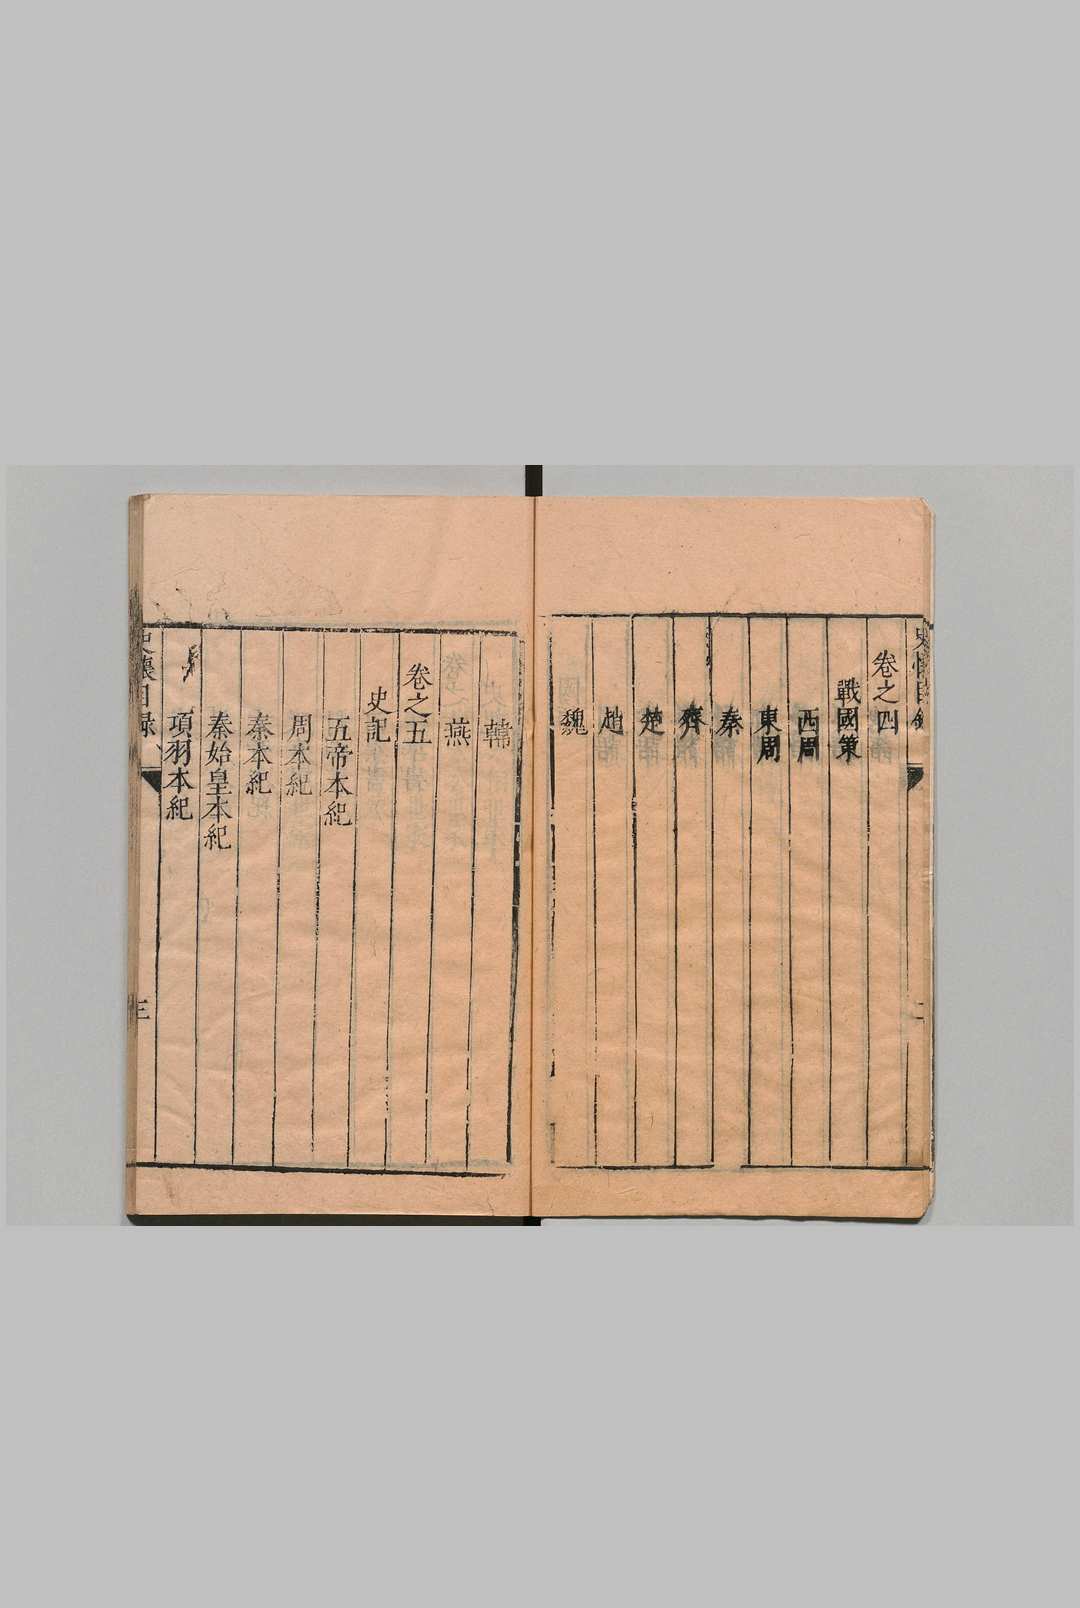 史懷目錄
卷之四
戰國策
西周
東周
秦
齊
楚
趙
魏
二
韓
燕
卷之五
史記
五帝本紀
周本紀
秦本紀
秦始皇本紀
項羽本紀
史懷目録
三